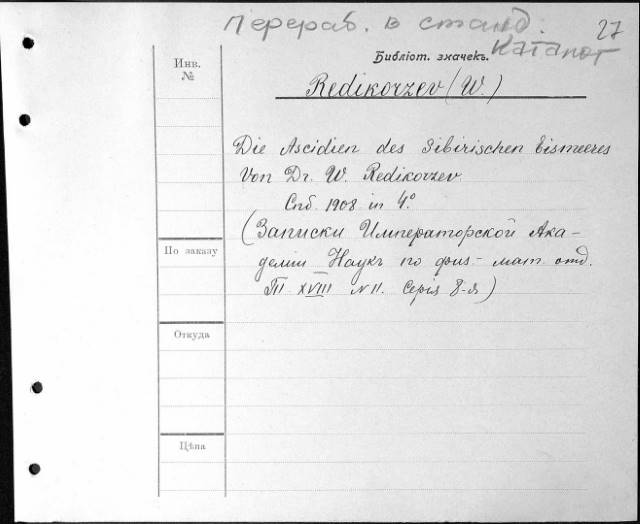 перераб. в станд.
каталог
27
Библіот. значекъ.
Redikorzev (W.)
Инв.
№
Die Ascidien des Sibirischen Eismeeres
Von Dr. W. Redikorzev
Спб. 1908 in 4°
(Записки Императорской Ака-
деміи Наукъ по физ.-мат. отд.
XVIII N 11. Серія 8-я)
По заказу
Откуда
Цѣна